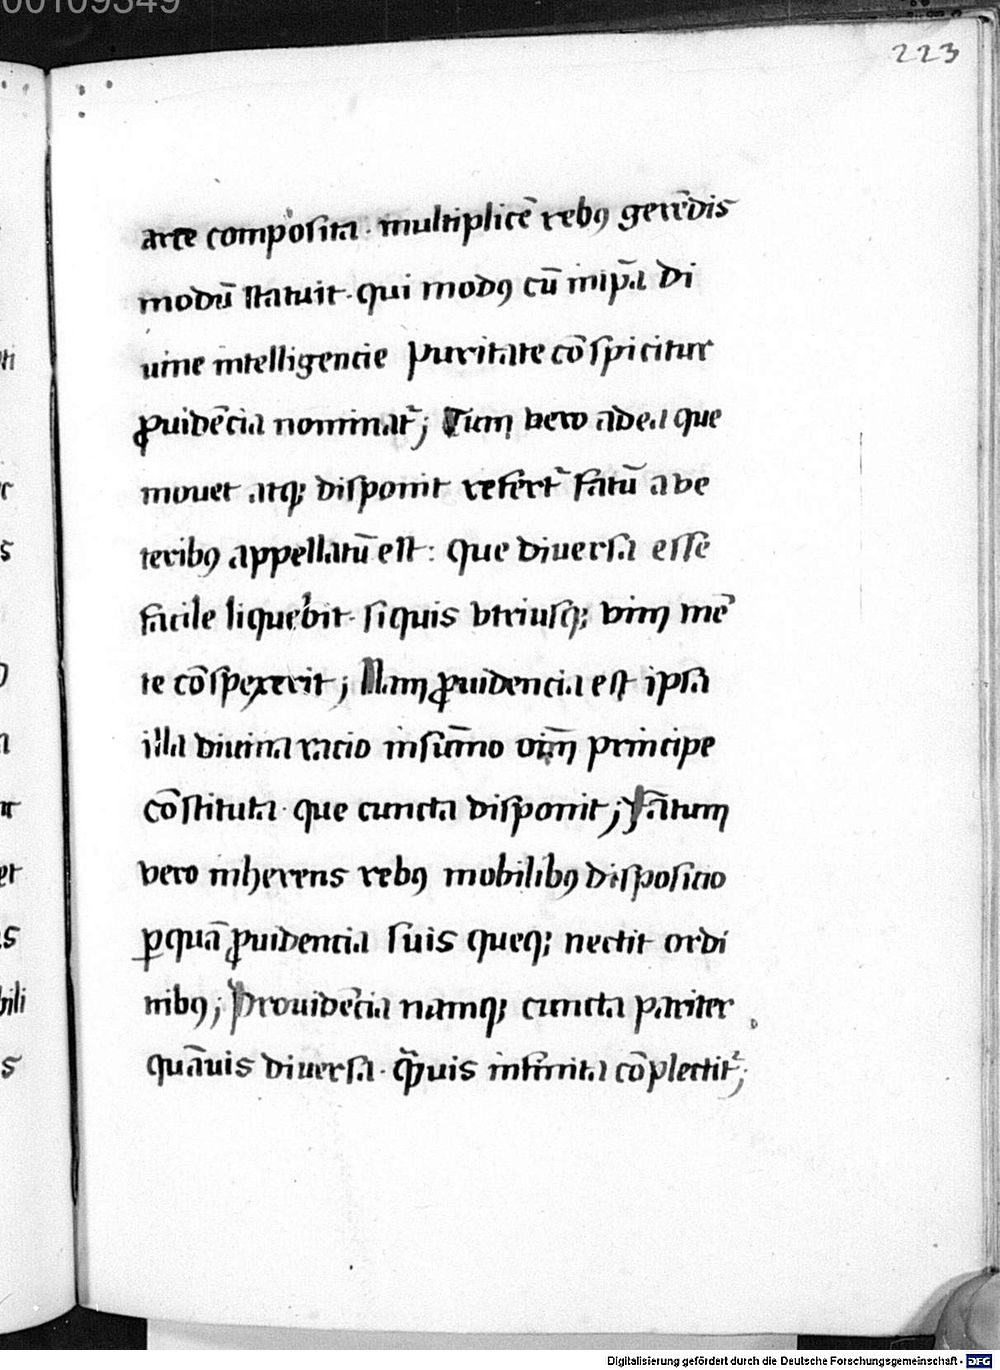 00109349
223
arte composita · multiplicē rebꝰ gerēdis
modū statuit · qui modꝰ cū in ip̄a di
uine intelligencie puritate cōspicitur
ꝓuidēcia nominat᷑; Cum vero ad ea que
mouet atqꝫ disponit refert᷑ fatū a ve
teribꝰ appellatū est : que diuersa esse
facile liquebit · si quis vtriusqꝫ vim mē
te cōspexerit ; Nam ꝓuidencia est ipsa
illa diuina racio in sūmo oīm principe
cōstituta · que cuncta disponit ; Fatum
vero inherens rebꝰ mobilibꝰ disposicio
ꝑ quā ꝓuidencia suis queqꝫ nectit ordi
nibꝰ ; Prouidēcia namqꝫ cuncta pariter
quāuis diuersa · q̄uis infinita cōplectit᷑;
Digitalisierung gefördert durch die Deutsche Forschungsgemeinschaft - DFG